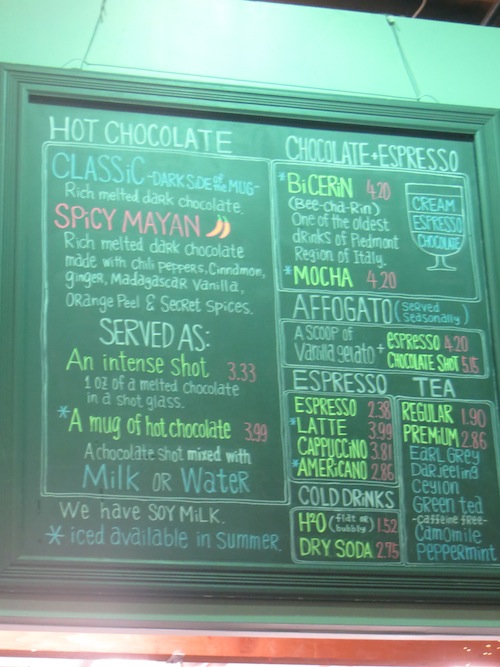 HOT CHOCOLATE
CLASSiC -DARK SiDE of the MUG-
Rich melted dark chocolate.
SPiCY MAYAN
Rich melted dark chocolate
made with chili peppers, Cinnamon,
ginger, Madagascar Vanilla,
Orange Peel & Secret Spices.
SERVED AS:
An intense shot 3.33
1 oz of a melted chocolate
in a shot glass.
*A mug of hot chocolate 3.99
A chocolate shot mixed with
Milk OR Water
We have SOY MiLK.
* iced available in Summer.
CHOCOLATE + ESPRESSO
*BiCERiN 4.20
(Bee-cha-Rin)
One of the oldest
drinks of Piedmont
Region of Italy.
CREAM
ESPRESSO
CHOCOLATE
*MOCHA 4.20
AFFOGATO (Served Seasonally)
A SCOOP OF
Vanilla gelato +
espresso 4.20
CHOCOLATE SHOT 5.15
ESPRESSO
ESPRESSO 2.38
*LATTE 3.99
CAPPUCCiNO 3.81
*AMERiCANO 2.86
COLD DRiNKS
H2O (flat or bubbly) 1.52
DRY SODA 2.75
TEA
REGULAR 1.90
PREMiUM 2.86
EARL GREY
DARJEELING
Ceylon
Green tea
-caffeine free-
Camomile
Peppermint